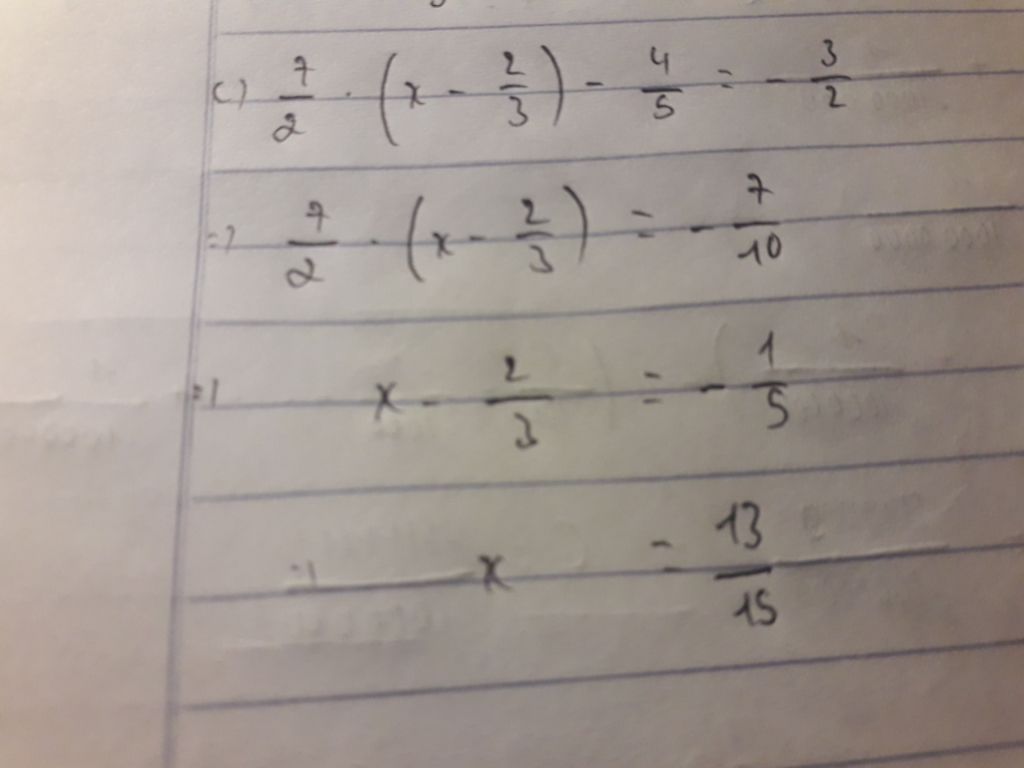 c) 7/2 · (x - 2/3) - 4/5 = - 3/2
=) 7/2 · (x - 2/3) = - 7/10
=) x - 2/3 = - 1/5
=) x = 13/15